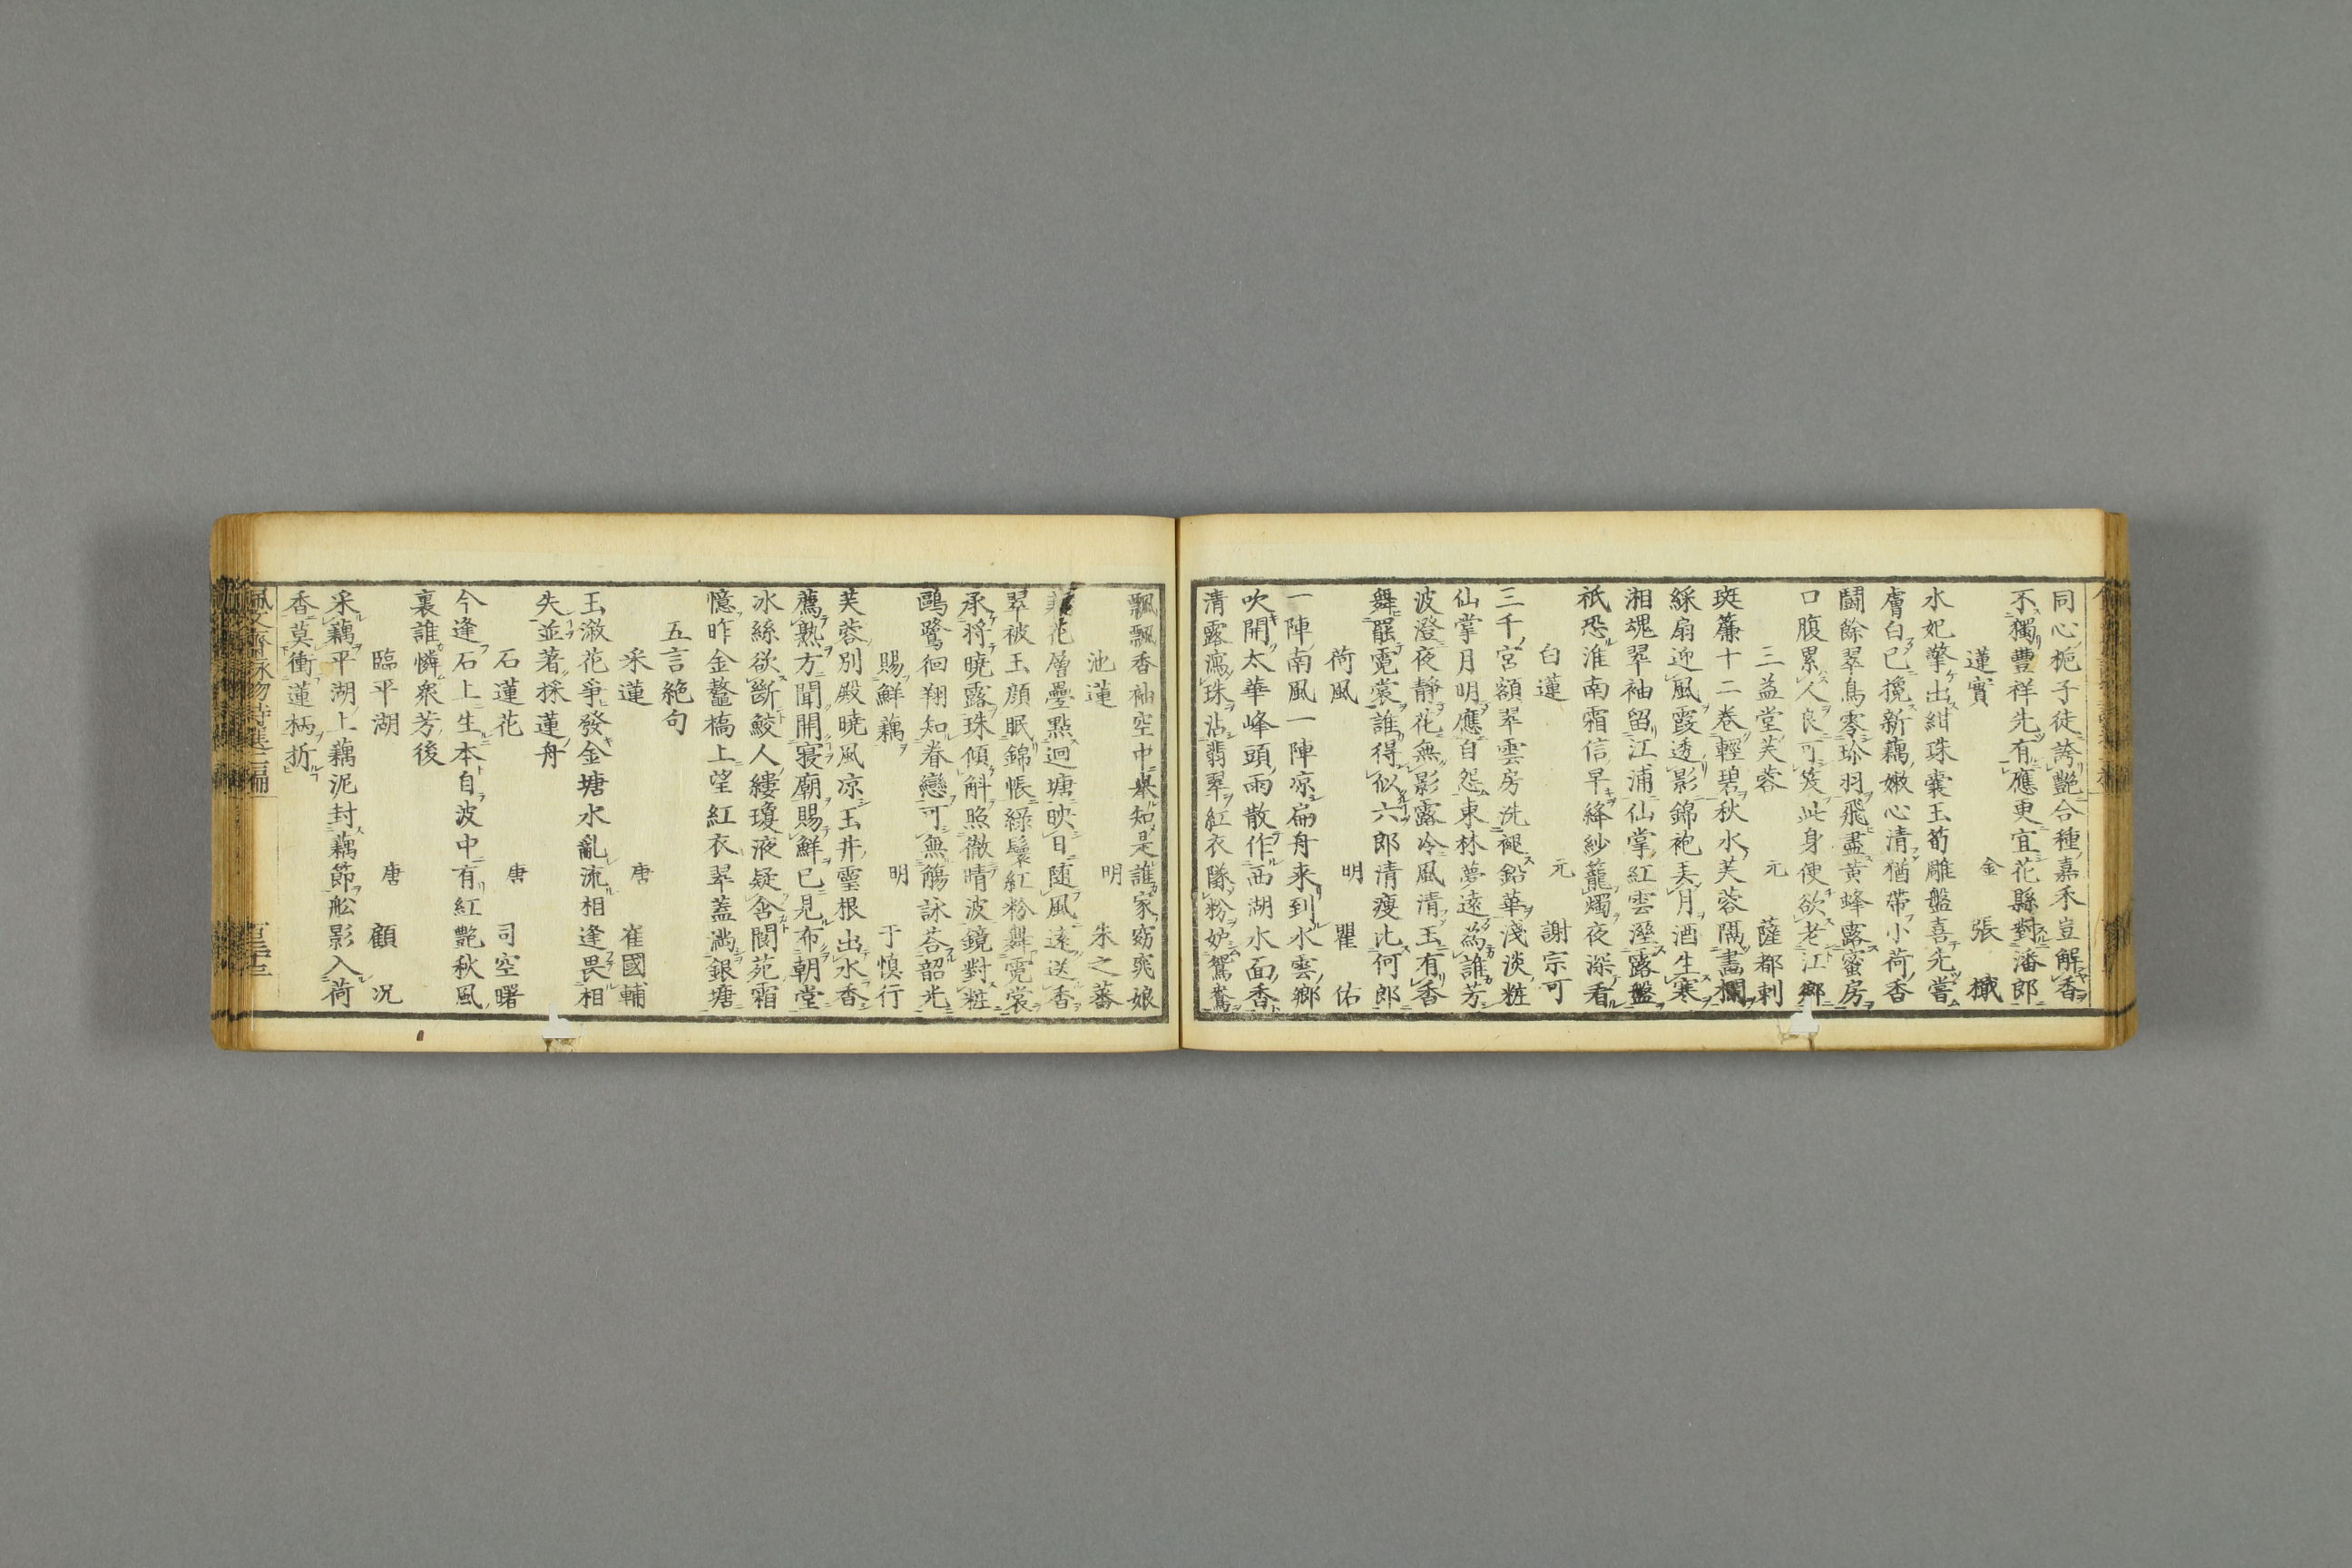 同心梔子徒誇艶合種嘉禾豈解香
不獨豐祥先有應更宜花縣對潘郎
蓮實 金 張檝
水妃擎出紺珠囊玉筍雕盤喜先嘗
膚白已攙新藕嫩心清猶帶小荷香
鬪餘翠鳥零珍羽飛盡黃蜂露蜜房
口腹累人良可笑此身便欲老江鄉
三益堂芙蓉 元 薩都剌
斑簾十二卷輕碧秋水芙蓉隔畵欄
綵扇迎風霞透影錦袍弄月酒生寒
湘魂翠袖留江浦仙掌紅雲溼露盤
祇恐淮南霜信早絳紗籠燭夜深看
白蓮 元 謝宗可
三千宮額翠雲房洗褪鉛華淺淡粧
仙掌月明應自怨東林夢遠爲誰芳
波澄夜靜花無影露冷風清玉有香
舞罷霓裳誰得似六郎清瘦比何郎
荷風 明 瞿佑
一陣南風一陣凉扁舟来到水雲鄉
吹開太華峰頭雨散作西湖水面香
清露瀉珠沾翡翠紅衣隊粉妒鴛鴦
飄飄香袖空中擧知是誰家窈窕娘
池蓮 明 朱之蕃
花層疊點迴塘映日随風遠送香
翠被玉顔眠錦帳綠鬟紅粉舞霓裳
承將曉露珠傾斛照徹晴波鏡對粧
鷗鷺徊翔知眷戀可無觴詠荅韶光
賜鮮藕 明 于慎行
芙蓉別殿曉風凉玉井靈根出水香
薦熟方聞開寝廟賜鮮已見布朝堂
冰絲欲斷鮫人縷瓊液疑含閬苑霜
憶昨金鼇橋上望紅衣翠蓋滿銀塘
五言絕句
采蓮 唐 崔國輔
玉溆花爭發金塘水亂流相逢畏相
失並著採蓮舟
石蓮花 唐 司空曙
今逢石上生本自波中有紅艶秋風
裏誰憐衆芳後
臨平湖 唐 顧况
采藕平湖上藕泥封藕節舩影入荷
香莫衝蓮柄折
佩文齋詠物詩選二編